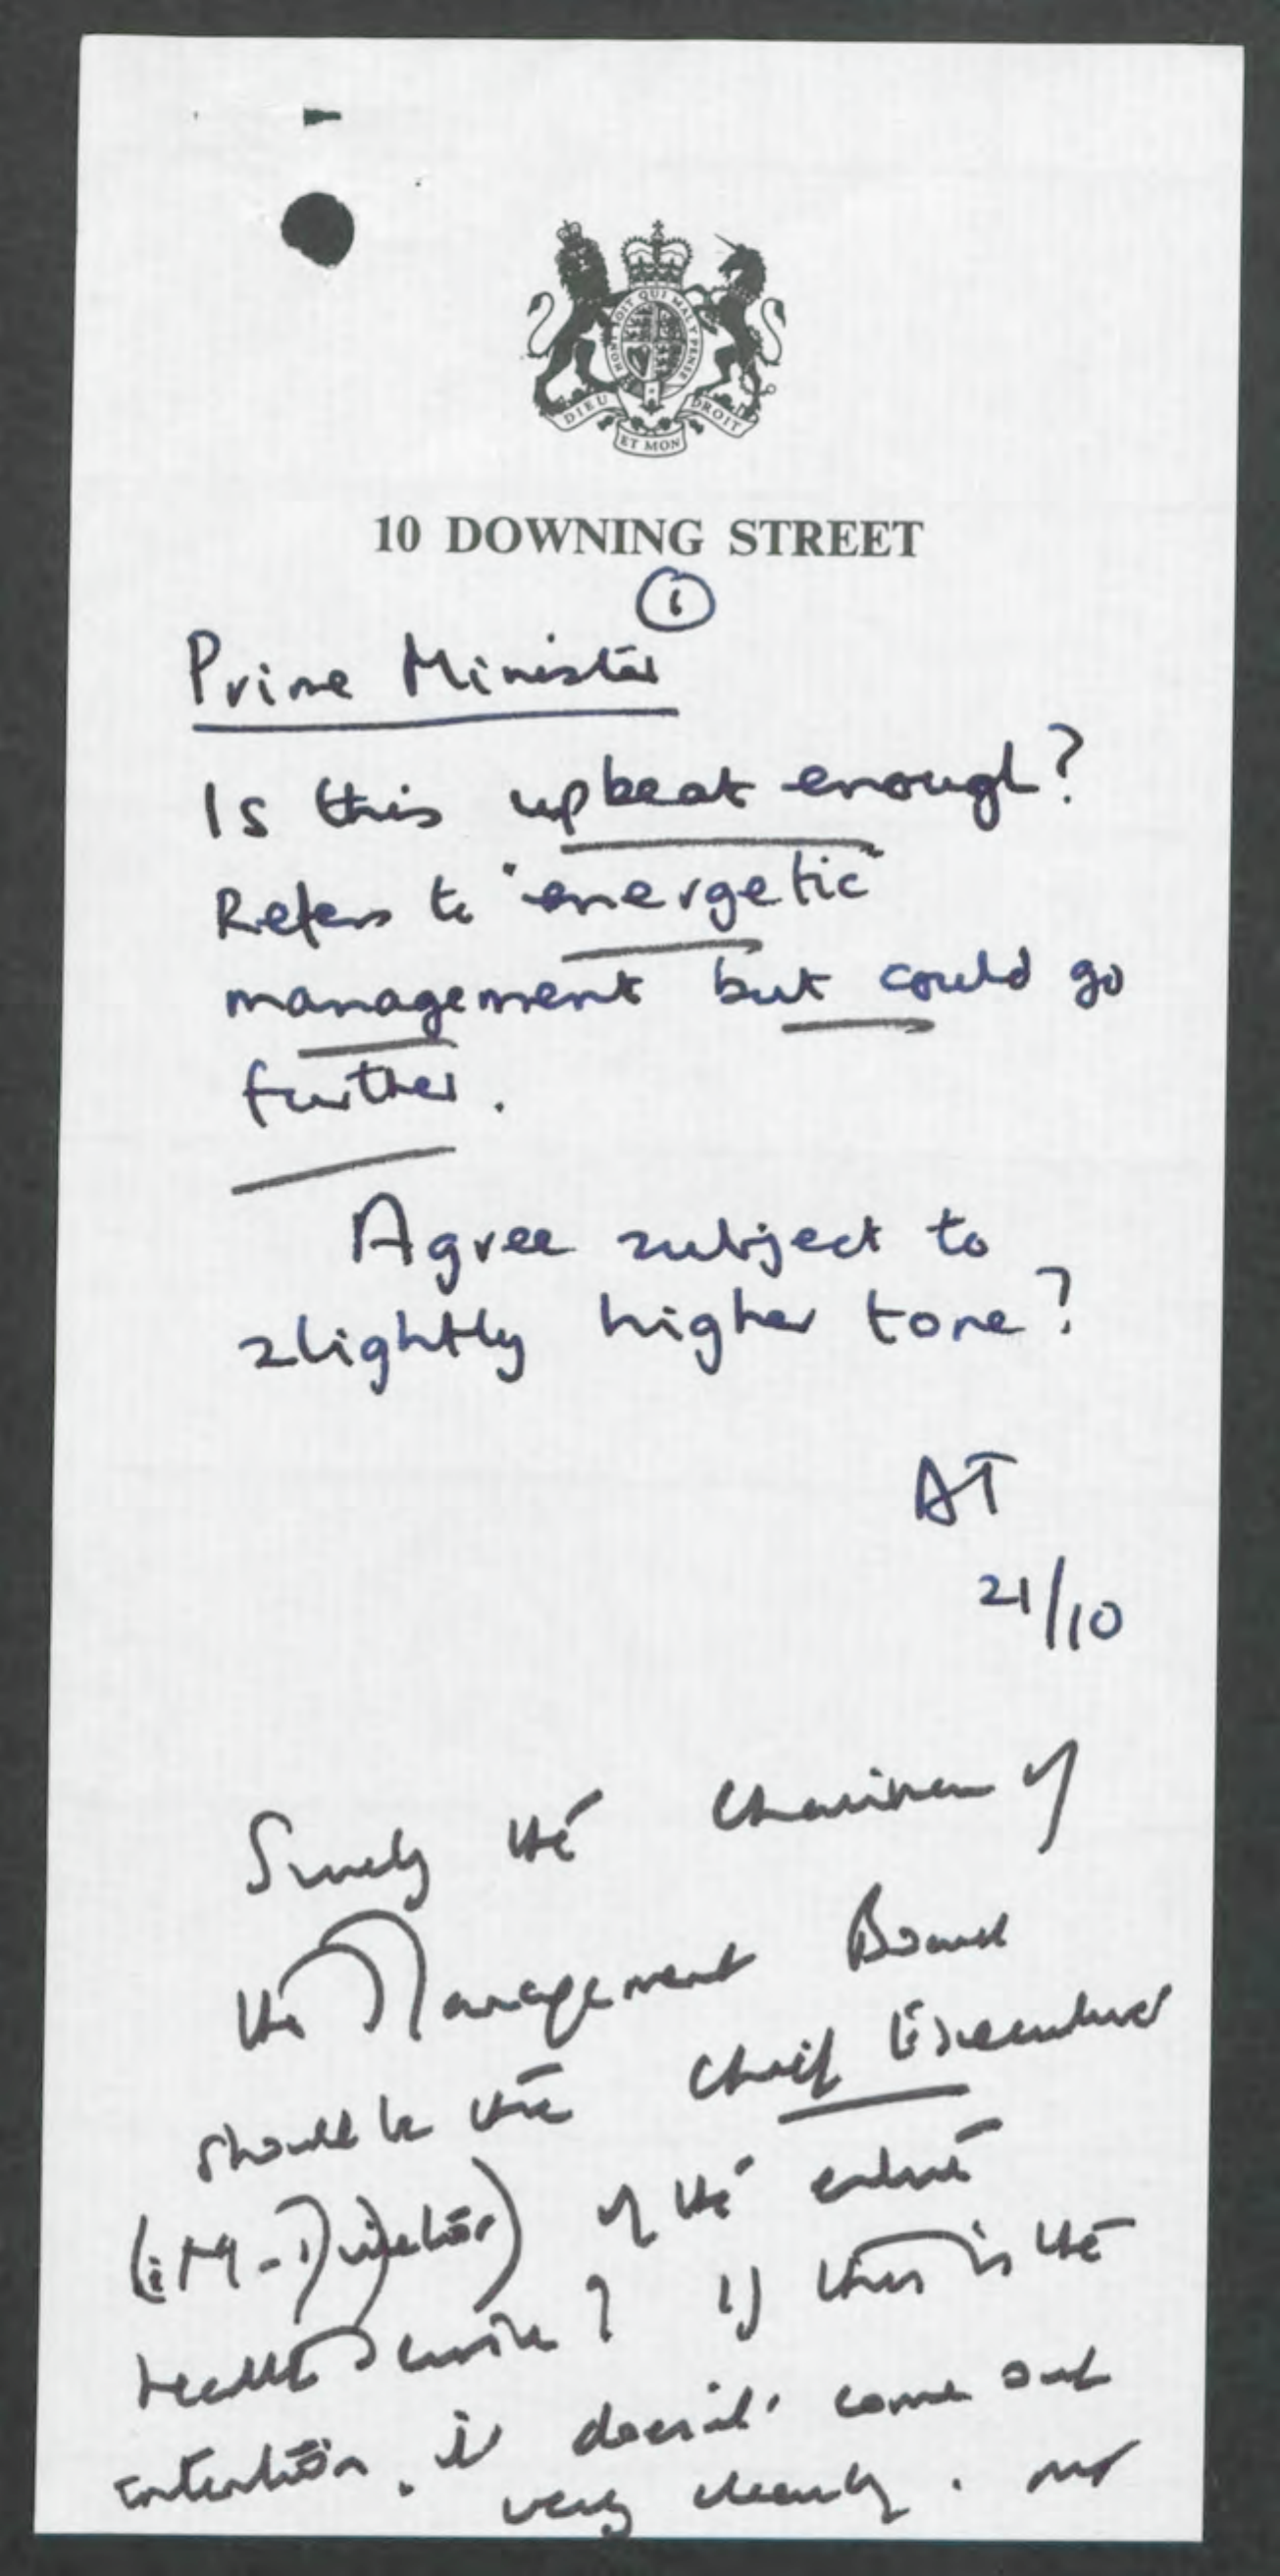 HONI SOIT QUI MAL Y PENSE
DIEU ET MON DROIT
10 DOWNING STREET
①
Prime Minister
Is this upbeat enough?
Refers to "energetic"
management but could go
further.
Agree subject to
slightly higher tone?
AT
21/10
Surely the Chairman of
the Management Board
should be the Chief Executive
(i.e. M-Director) of the entire
Health Service? If this is the
intention, it doesn't come out
very clearly. mt